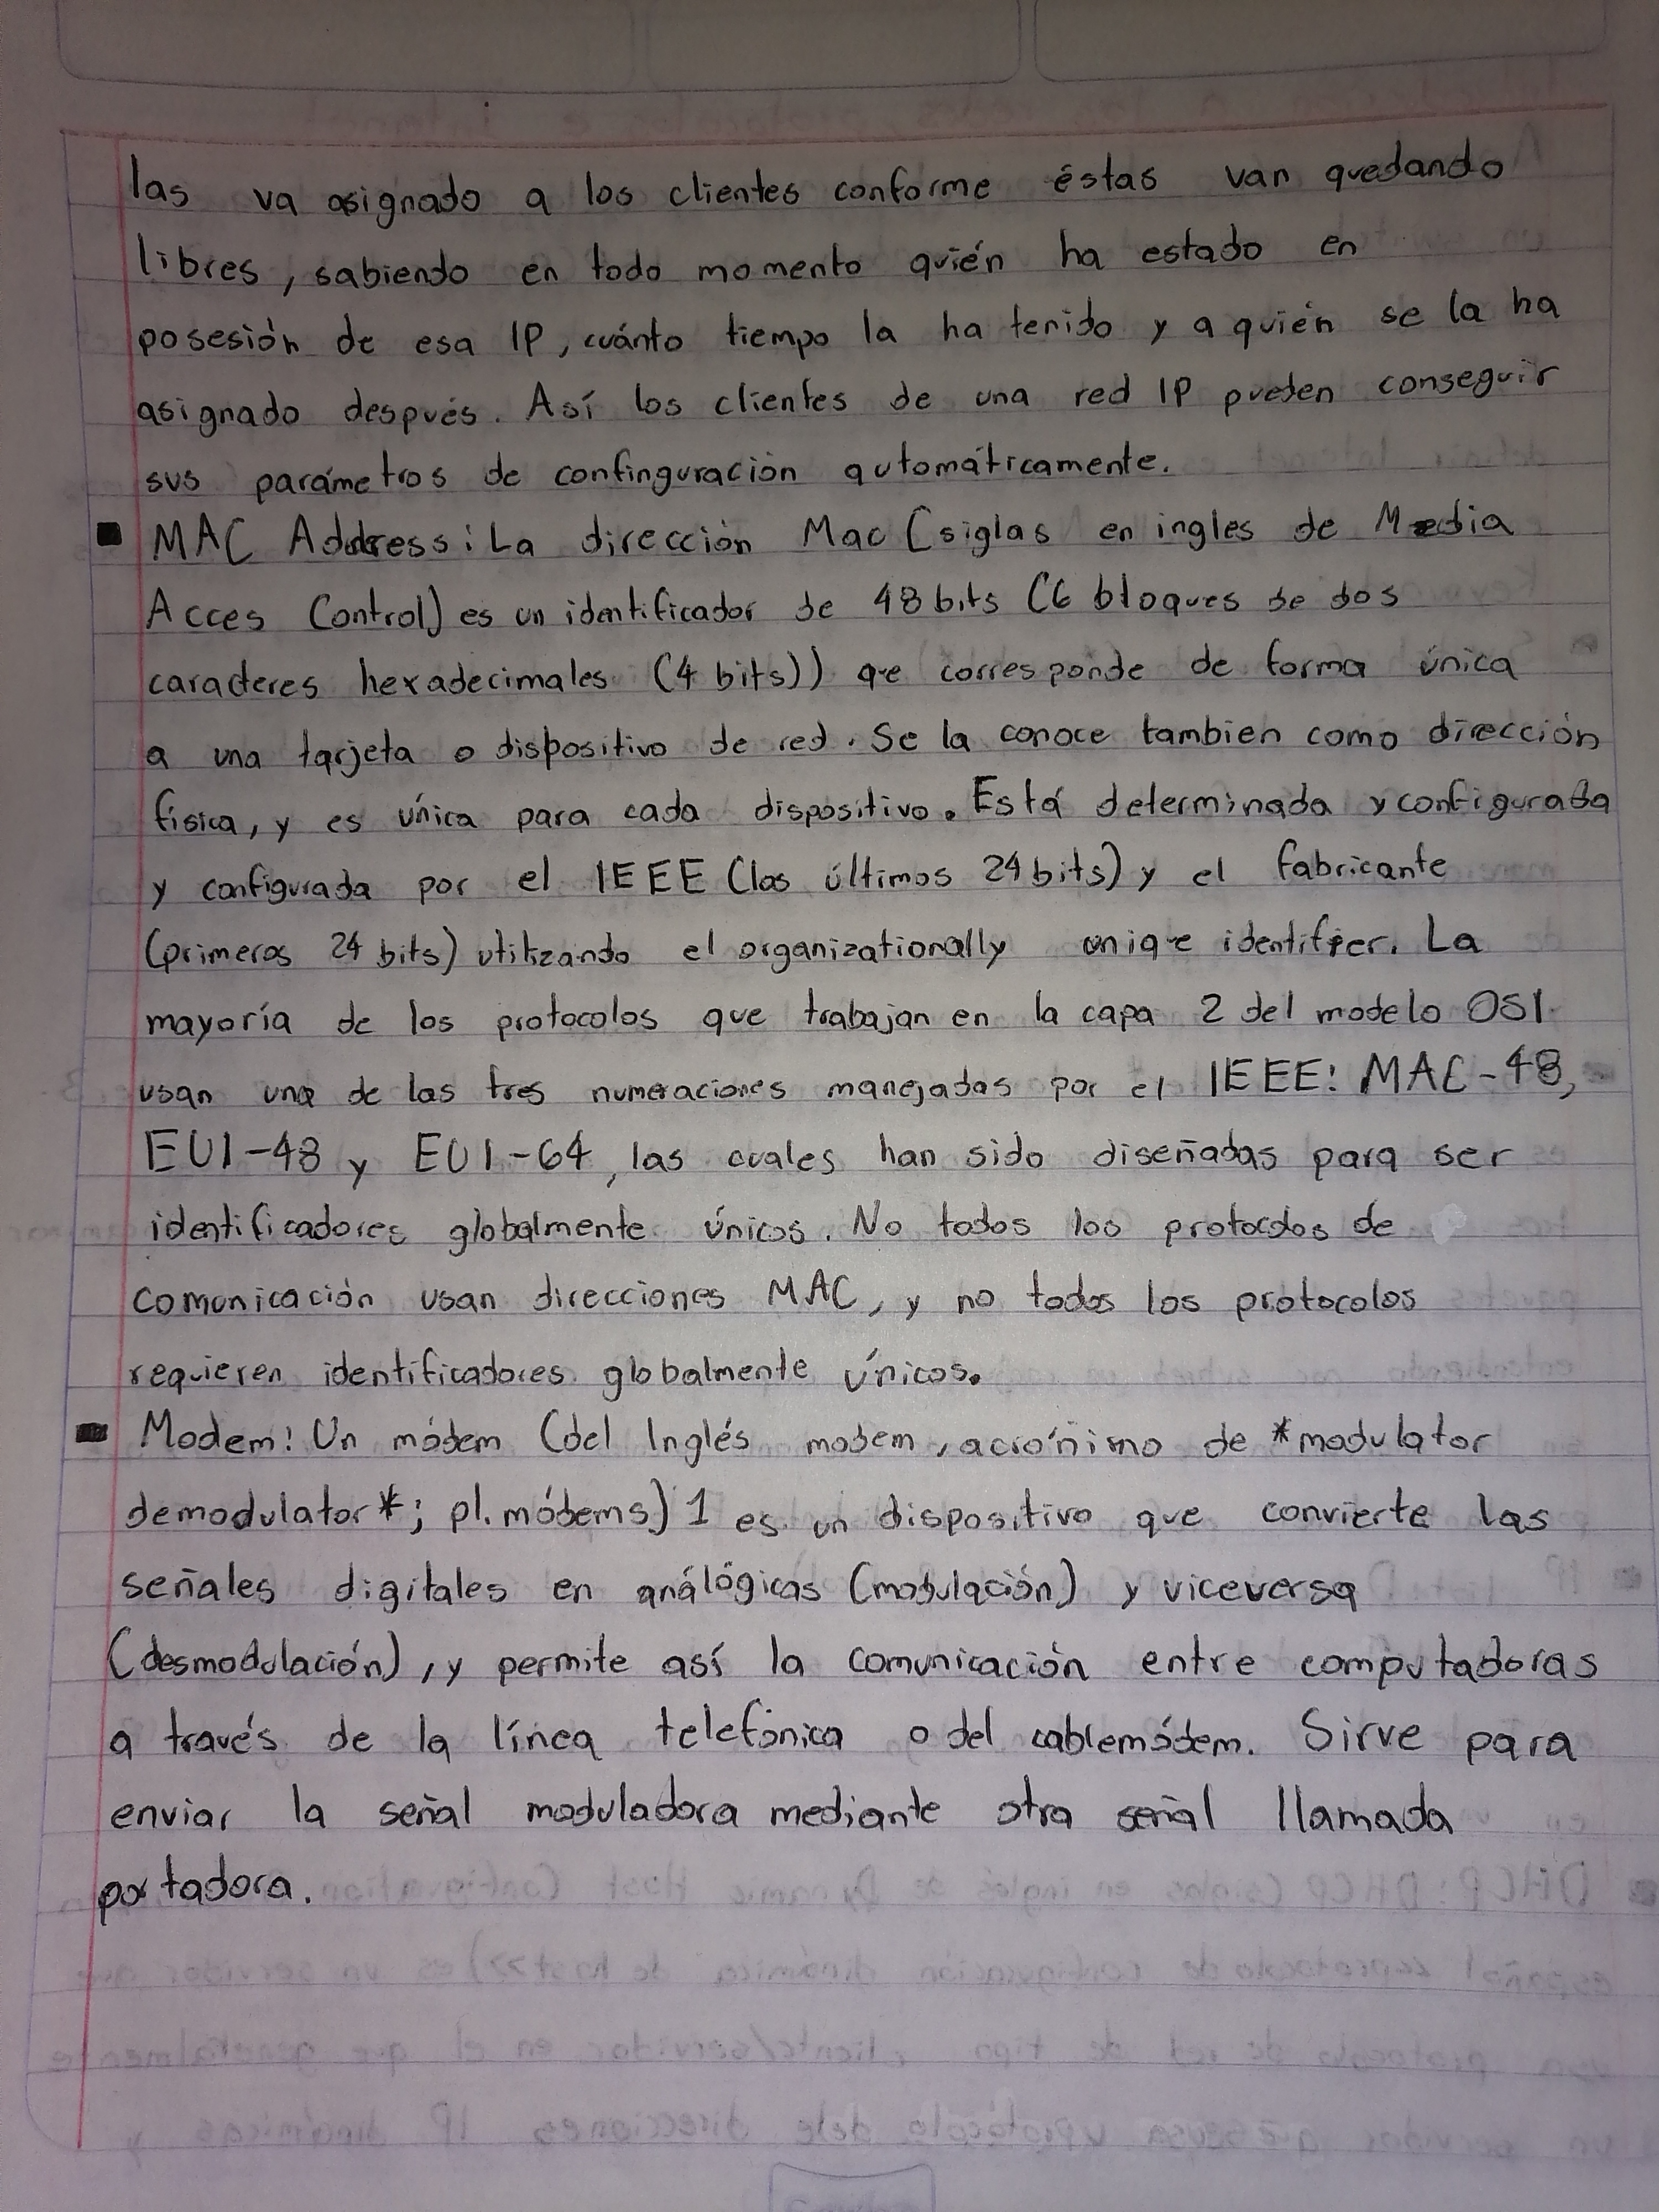 las va asignado a los clientes conforme éstas van quedando
libres, sabiendo en todo momento quién ha estado en
posesión de esa IP, cuánto tiempo la ha tenido y a quién se la ha
asignado después. Así los clientes de una red IP pueden conseguir
sus parámetros de confinguración automáticamente.
▪ MAC Address: La dirección Mac (siglas en ingles de Media
Acces Control) es un identificador de 48 bits (6 bloques de dos
caracteres hexadecimales (4 bits)) que corresponde de forma única
a una tarjeta o dispositivo de red. Se la conoce tambien como dirección
física, y es única para cada dispositivo. Está determinada y configurada
y configurada por el IEEE (los últimos 24 bits) y el fabricante
(primeros 24 bits) utilizando el organizationally unique identifier. La
mayoría de los protocolos que trabajan en la capa 2 del modelo OSI
usan una de las tres numeraciones manejadas por el IEEE: MAC-48,
EUI-48 y EUI-64, las cuales han sido diseñadas para ser
identificadores globalmente únicos. No todos los protocolos de
comunicación usan direcciones MAC, y no todos los protocolos
requieren identificadores globalmente únicos.
▪ Modem: Un módem (del Inglés modem, acrónimo de *modulator
demodulator*; pl. módems) 1 es un dispositivo que convierte las
señales digitales en análógicas (modulación) y viceversa
(desmodulación), y permite así la comunicación entre computadoras
a través de la línea telefónica o del cablemódem. Sirve para
enviar la señal moduladora mediante otra señal llamada
portadora.